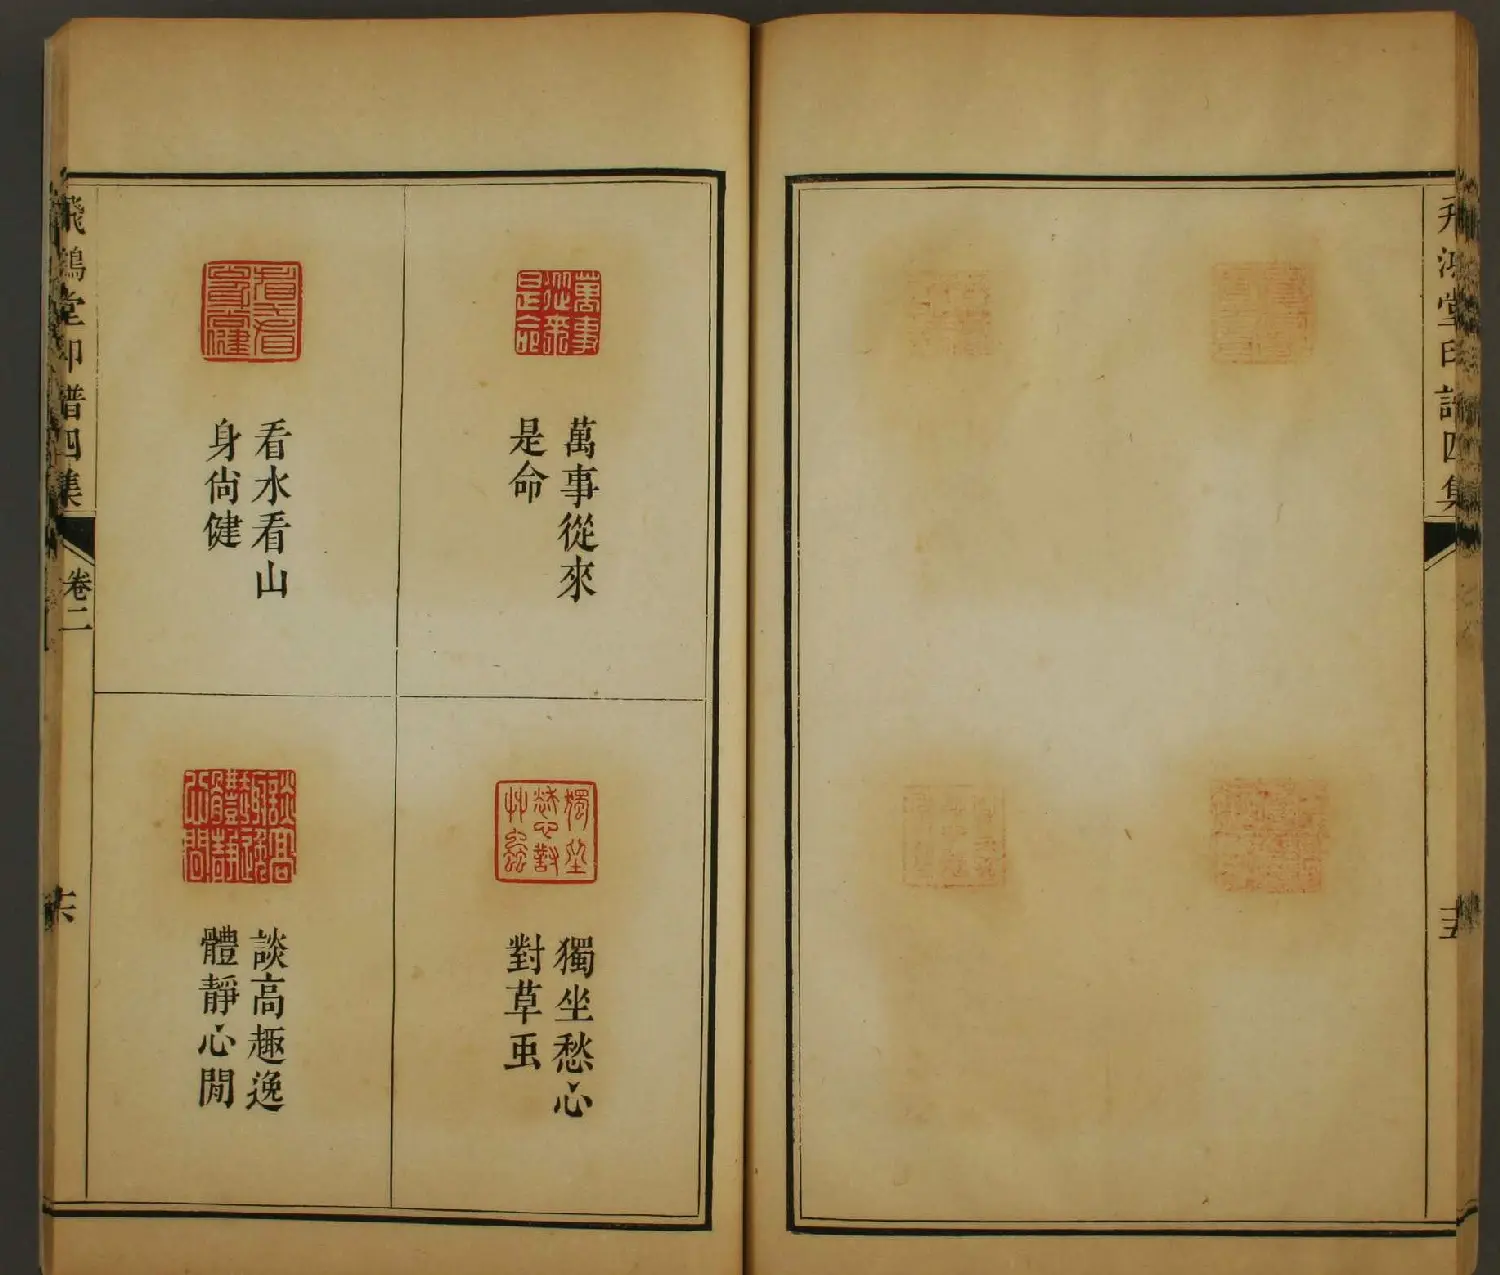 飛鴻堂印譜四集
十五
萬事從來
是命
獨坐愁心
對草䖝
看水看山
身尙健
談高趣逸
體靜心閒
飛鴻堂印譜四集
卷二
十六